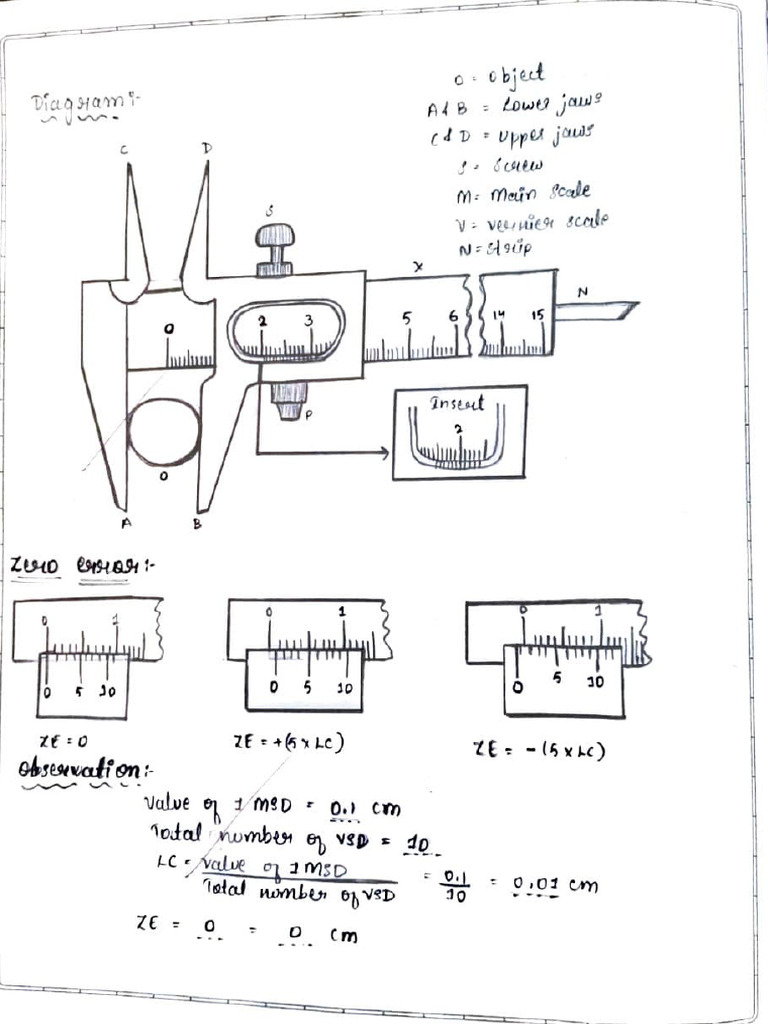 Diagram:-
O = Object
A & B = Lower jaws
C & D = Upper jaws
S = Screw
M = Main scale
V = vernier scale
N = strip
C D
S
X
N
0 2 3 5 6 14 15
P
Insert
2
O
A B
Zero error:-
0 1 0 1 0 1
0 5 10 0 5 10 0 5 10
ZE = 0 ZE = +(5 x LC) ZE = -(5 x LC)
Observation:-
Value of 1 MSD = 0.1 cm
Total number of VSD = 10
LC = Value of 1 MSD / Total number of VSD = 0.1 / 10 = 0.01 cm
ZE = 0 = 0 cm